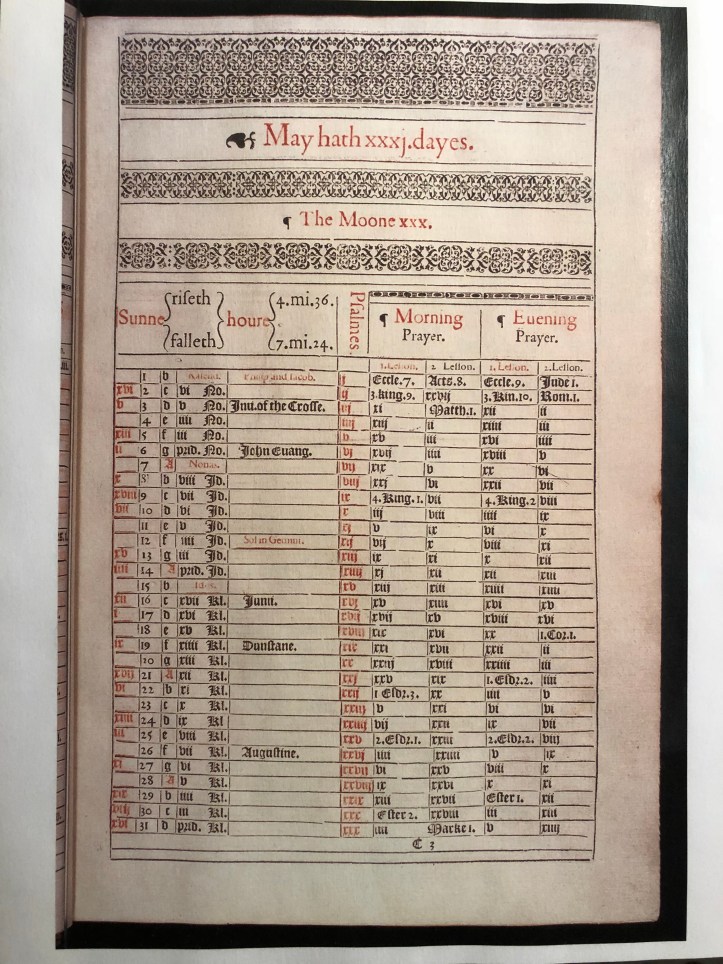 May hath xxxj. dayes.
¶ The Moone xxx.
Sunne { riseth } houre { 4.mi.36.
falleth 7.mi.24.
Psalmes.
¶ Morning Prayer.
¶ Euening Prayer.
1.Lesson. 2 Lesson. 1.Lesson. 2.Lesson.
1 b Kalend. Philip and Iacob. j Eccle.7. Acts.8. Eccle.9. Jude 1.
xvi 2 c vi No. ij 3.king.9. xxvij 3.Kin.10. Rom.1.
v 3 d v No. Inu.of the Crosse. iij xi Matth.1. xii ii
4 e iiii No. iiij xiij ii iiii
xiii 5 f iii No. v xv iii xvi iiii
ii 6 g prid. No. John Euang. vj xvij iiii xviii v
7 A Nonas. vij xix v xx vi
x 8 b viii Id. viij xxj vi xxii vii
xviii 9 c vii Id. ix 4.King.1. vii 4.King.2 viii
vii 10 d vi Id. x iij viii iiii ix
11 e v Id. xj v ix vi x
12 f iiii Id. Sol in Gemini. xij vij x viii xi
xv 13 g iii Id. xiij ix xi x xii
iiii 14 A prid. Id. xiiij xj xii xii xiii
15 b Idus. xv xiij xiii xiiii xiiii
xii 16 c xvii Kl. Junii. xvj xv xiiii xvi xv
i 17 d xvi Kl. xvij xvij xv xviii xvi
18 e xv Kl. xviij xix xvi xx 1.Cor.1.
ix 19 f xiiii Kl. Dunstane. xix xxi xvii xxii ii
20 g xiii Kl. xx xxiij xviii xxiiii iii
xvij 21 A xii Kl. xxj xxv xix 1.Esdr.2. iiii
vi 22 b xi Kl. xxij 1 Esdr.3. xx iiii v
23 c x Kl. xxiij v xxi vi vi
xiiii 24 d ix Kl xxiiij vij xxii ix vii
iii 25 e viii Kl. xxv 2.Esdr.1. xxiii 2.Esdr.2. viij
26 f vii Kl. Augustine. xxvj iiii xxiiii v ix
xi 27 g vi Kl. xxvij vi xxv viii x
28 A v Kl. xxviij ix xxvi x xi
xix 29 b iiii Kl. xxix xiii xxvii Ester 1. xii
viij 30 c iii Kl. xxx Ester 2. xxviii iii xiii
xvi 31 d prid. Kl. xxx iiii Marke 1. v xiiij
C 3